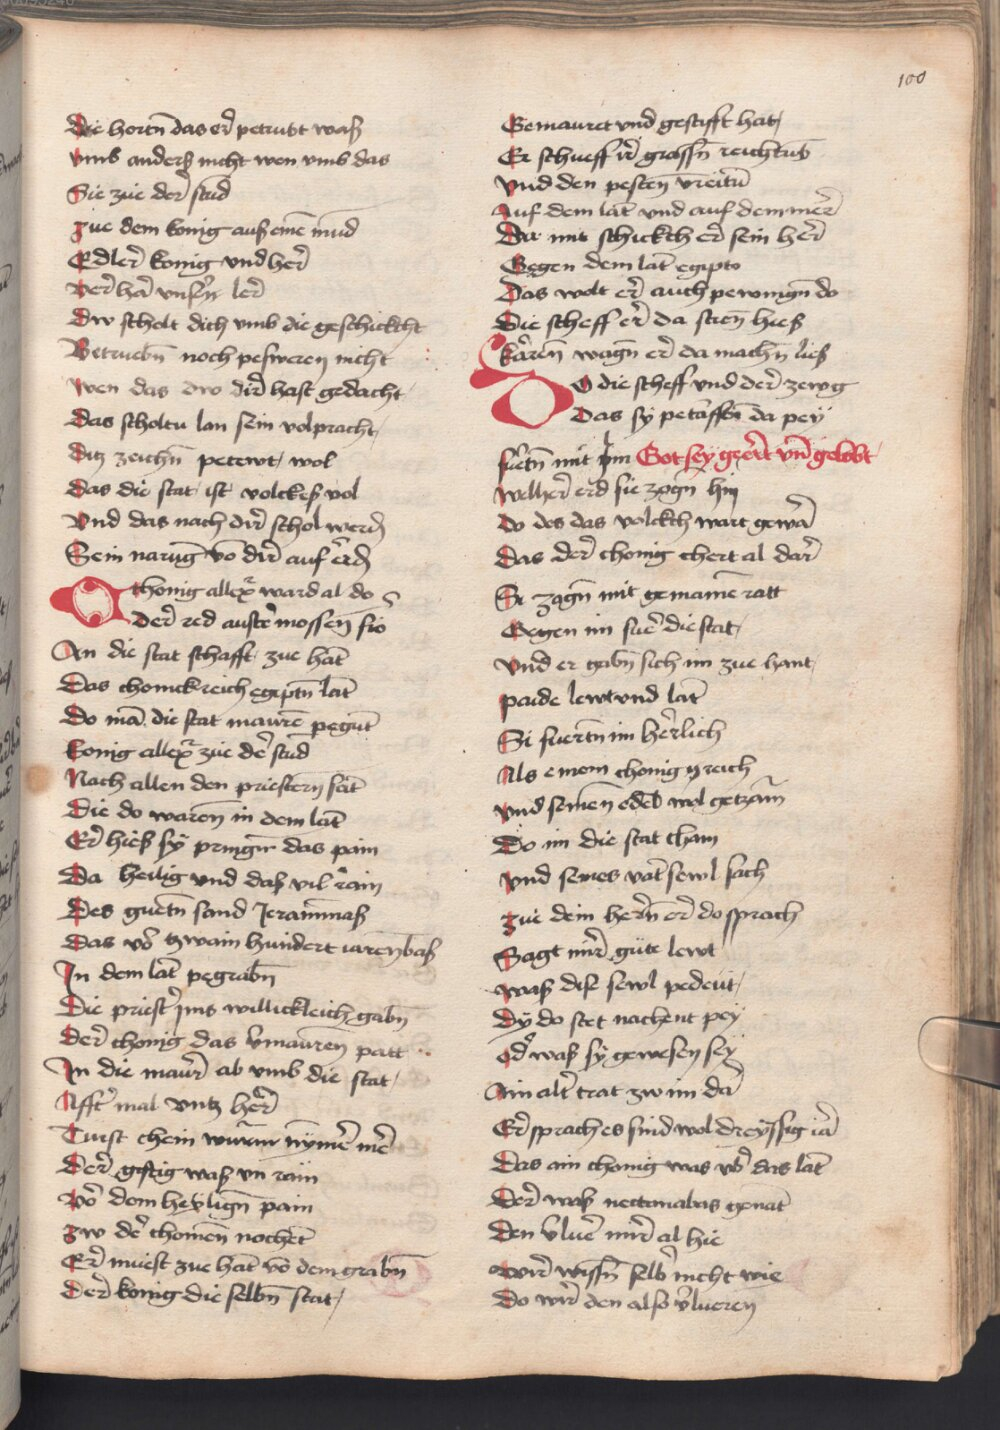 100
Die hortn̄ das er̄ petrubt waß
vmb anderß nicht wen vmb das
Sie zue der̄ stūd
zue dem konig auß eīnē mūd
Edler̄ konig vnd her̄
ver̄ hā vnsn̄ ler̄
Dw scholt dich vmb die geschickcht
Betruebn̄ noch peswerenn nicht
wen das dw dir̄ hast gedacht
Das scholtu lan sein volpracht
Ditz zeichn̄ petewt wol
Das die stat ist volckeß vol
Vnd das nach dir̄ schol werdn̄
Sein narūg vō dir̄ auf erdn̄
O chonig allex̄ ward al do
Der̄ red austē mossen̄ fro
An die stat schafft zue hāt
Das chonickreich egeptn̄ lāt
Do mā die stat mauren̄ pegūt
konig allex̄ zue de᷑ stūd
Nach allen den priestern sāt
Die do waren̄ in dem lāt
Er̄ hieß sy pringn̄ das pain
Da heilig vnd das vil rain
Des guetn̄ sand Jeramīnaß
Das vō tzwain hundert iaren baß
In dem lāt pegrabn̄
Die priest᷑ ims willickleich gabn̄
Der̄ chonig das v᷑mauren patt
In die maur̄ ab vmb die stat
Afft᷑ mal vntz her̄
Turst chein wurm nymē mē
Der̄ giftig waß vn rain
Vō dem heylign̄ pain
zw de᷑ chomen̄ nochēt
Er̄ muest zue hāt vō dem grabn̄
Der̄ konig die selbn̄ stat
Gemauret vnd gestifft hat
Er schueff ir̄ grossn̄ reichtūb
Vnd den pesten̄ vreitū
Auf dem lāt vnd auf dem mer̄
Da mit schickch er̄ sein her̄
Gegen dem lāt egipto
Das wolt er̄ auch pewingn̄ do
Die scheff er̄ da sten̄ hieß
karen̄ wagn̄ er̄ da machn̄ ließ
DO die scheff vnd der̄ zewg
Das sy petaffen̄ da pey
fuertn̄ mit im Got sey geert vn̄ gelobt
Welher̄ erd sie zogn̄ hin
Do des das volckch wart gewā
Das der̄ chonig chert al dar̄
Si zagn̄ mit gemainē ratt
Gegen im fuer̄ die stat
Vnd er gabn̄ sich im zue hant
paide lewt vnd lāt
Si fuertn̄ im herlich
Als einem chonig reich
Vnd seinen̄ edeln wol getzam
Do im die stat cham
Vnd seines vat᷑ sewl sach
zue dem hern̄ er̄ do sprach
Sagt mir̄ gute lewt
waß dise sewl pedeut
Dy do stet nachent pey
od᷑ waß sy gewesen sey
Ain alt᷑ trat zw im da
Er̄ sprach es sind wol dreyssig iar̄
Das ain chonig was vb᷑ das lāt
Der̄ waß nectanabus genāt
Den v᷑luer̄ mir̄ al hie
wir̄ wissn̄ selb᷑ nicht wie
Do wir̄ den also v᷑lueren